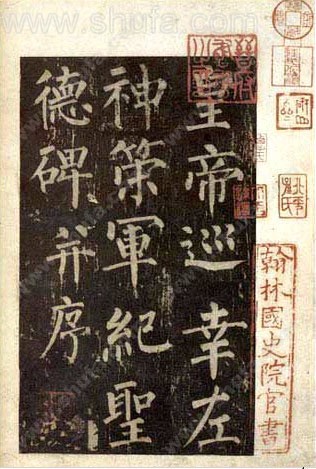 皇帝巡幸左
神策軍紀聖
德碑并序
翰林國史院官書
www.shufa.com